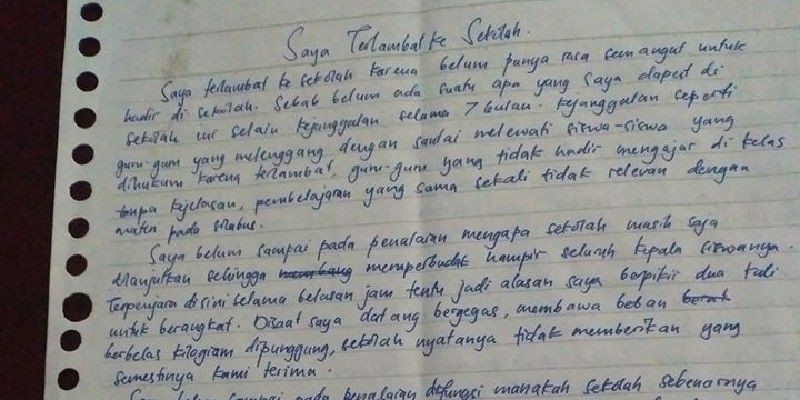 Saya Terlambat ke Sekolah.
Saya terlambat ke sekolah karena belum punya rasa semangat untuk
hadir di sekolah. Sebab belum ada suatu apa yang saya dapat di
sekolah ini selain kejanggalan selama 7 bulan. Kejanggalan seperti
guru-guru yang melenggang dengan santai melewati siswa-siswa yang
dihukum karena terlambat, guru-guru yang tidak hadir mengajar di kelas
tanpa kejelasan, pembelajaran yang sama sekali tidak relevan dengan
materi pada silabus.
Saya belum sampai pada penalaran mengapa sekolah masih saja
dilanjutkan sehingga memperbudak hampir seluruh kepala siswanya.
Terpenjara disini selama belasan jam tentu jadi alasan saya berpikir dua kali
untuk berangkat. Disaat saya datang bergegas, membawa beban berat
berbelas kilogram dipunggung, sekolah nyatanya tidak memberikan yang
semestinya kami terima.
sampai pada penalaran difungsi manakah sekolah sebenarnya